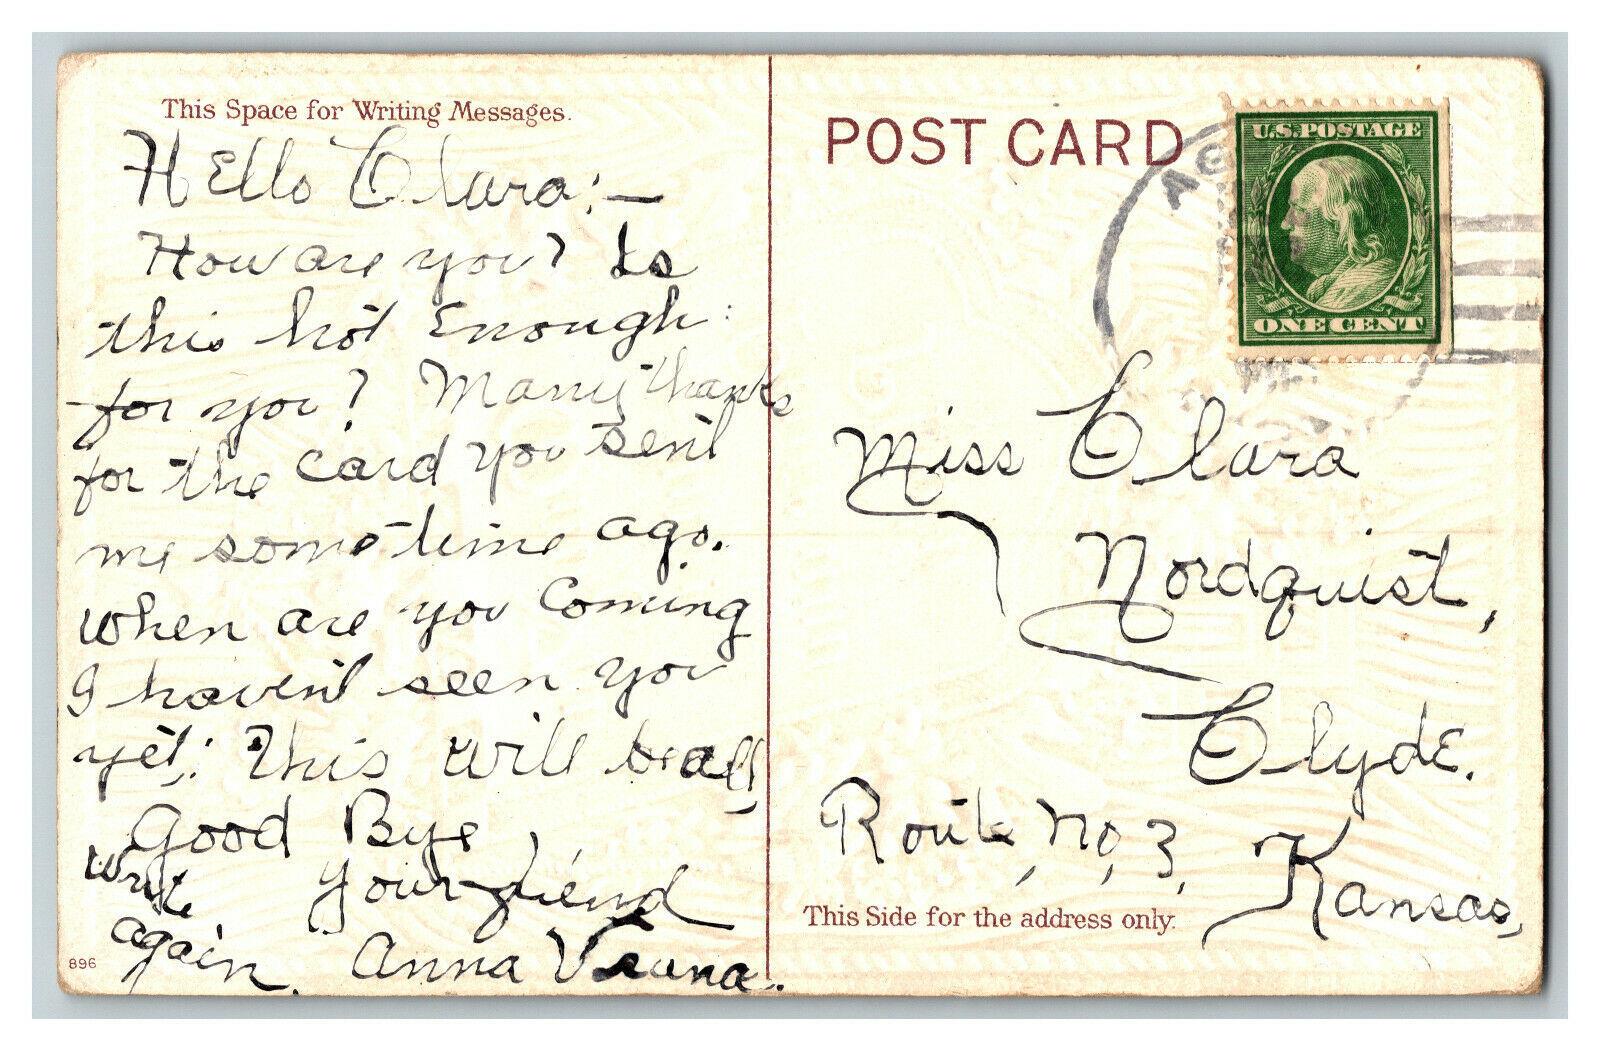 This Space for Writing Messages.
Hello Clara:—
How are you? Is
this hot Enough
for you? Many thanks
for the card you sent
me sometime ago.
When are you Coming
I haven't seen you
yet. This will be all,
Good Bye
Your friend
Anna
Write
again.
896
POST CARD
U.S. POSTAGE
ONE CENT
Miss Clara
Nordquist,
Clyde.
Route, No, 3, Kansas,
This Side for the address only.